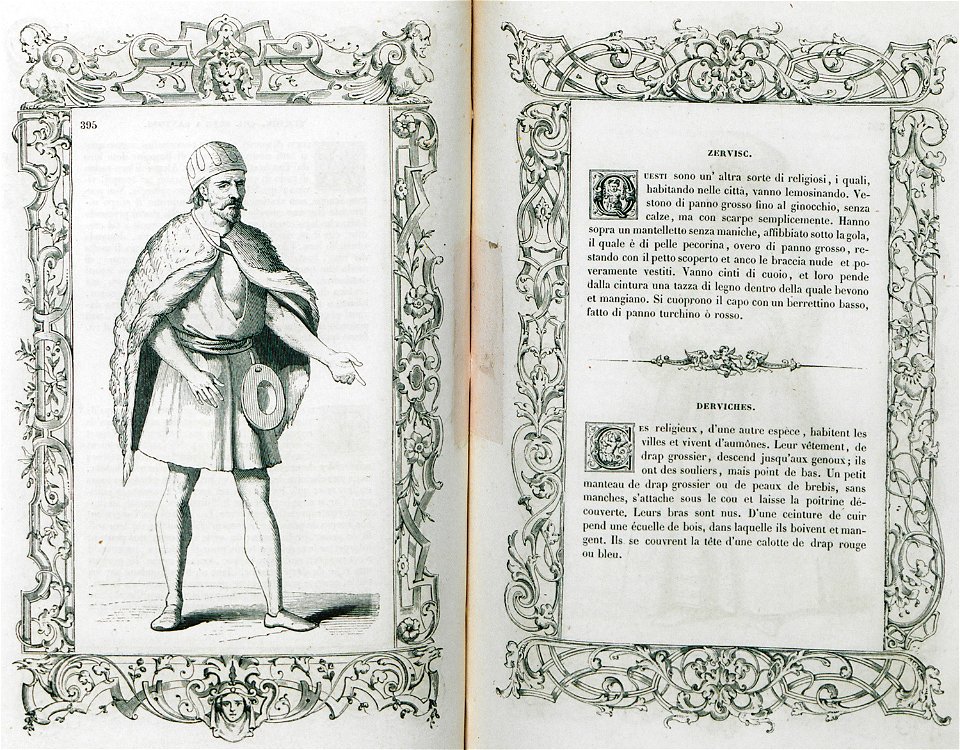 395
ZERVISC.
QUESTI sono un' altra sorte di religiosi, i quali,
habitando nelle città, vanno lemosinando. Ve-
stono di panno grosso fino al ginocchio, senza
calze, ma con scarpe semplicemente. Hanno
sopra un mantelletto senza maniche, affibbiato sotto la gola,
il quale è di pelle pecorina, overo di panno grosso, re-
stando con il petto scoperto et anco le braccia nude et po-
veramente vestiti. Vanno cinti di cuoio, et loro pende
dalla cintura una tazza di legno dentro della quale bevono
et mangiano. Si cuoprono il capo con un berrettino basso,
fatto di panno turchino ò rosso.
DERVICHES.
CES religieux, d'une autre espèce, habitent les
villes et vivent d'aumônes. Leur vêtement, de
drap grossier, descend jusqu'aux genoux; ils
ont des souliers, mais point de bas. Un petit
manteau de drap grossier ou de peaux de brebis, sans
manches, s'attache sous le cou et laisse la poitrine dé-
couverte. Leurs bras sont nus. D'une ceinture de cuir
pend une écuelle de bois, dans laquelle ils boivent et man-
gent. Ils se couvrent la tête d'une calotte de drap rouge
ou bleu.